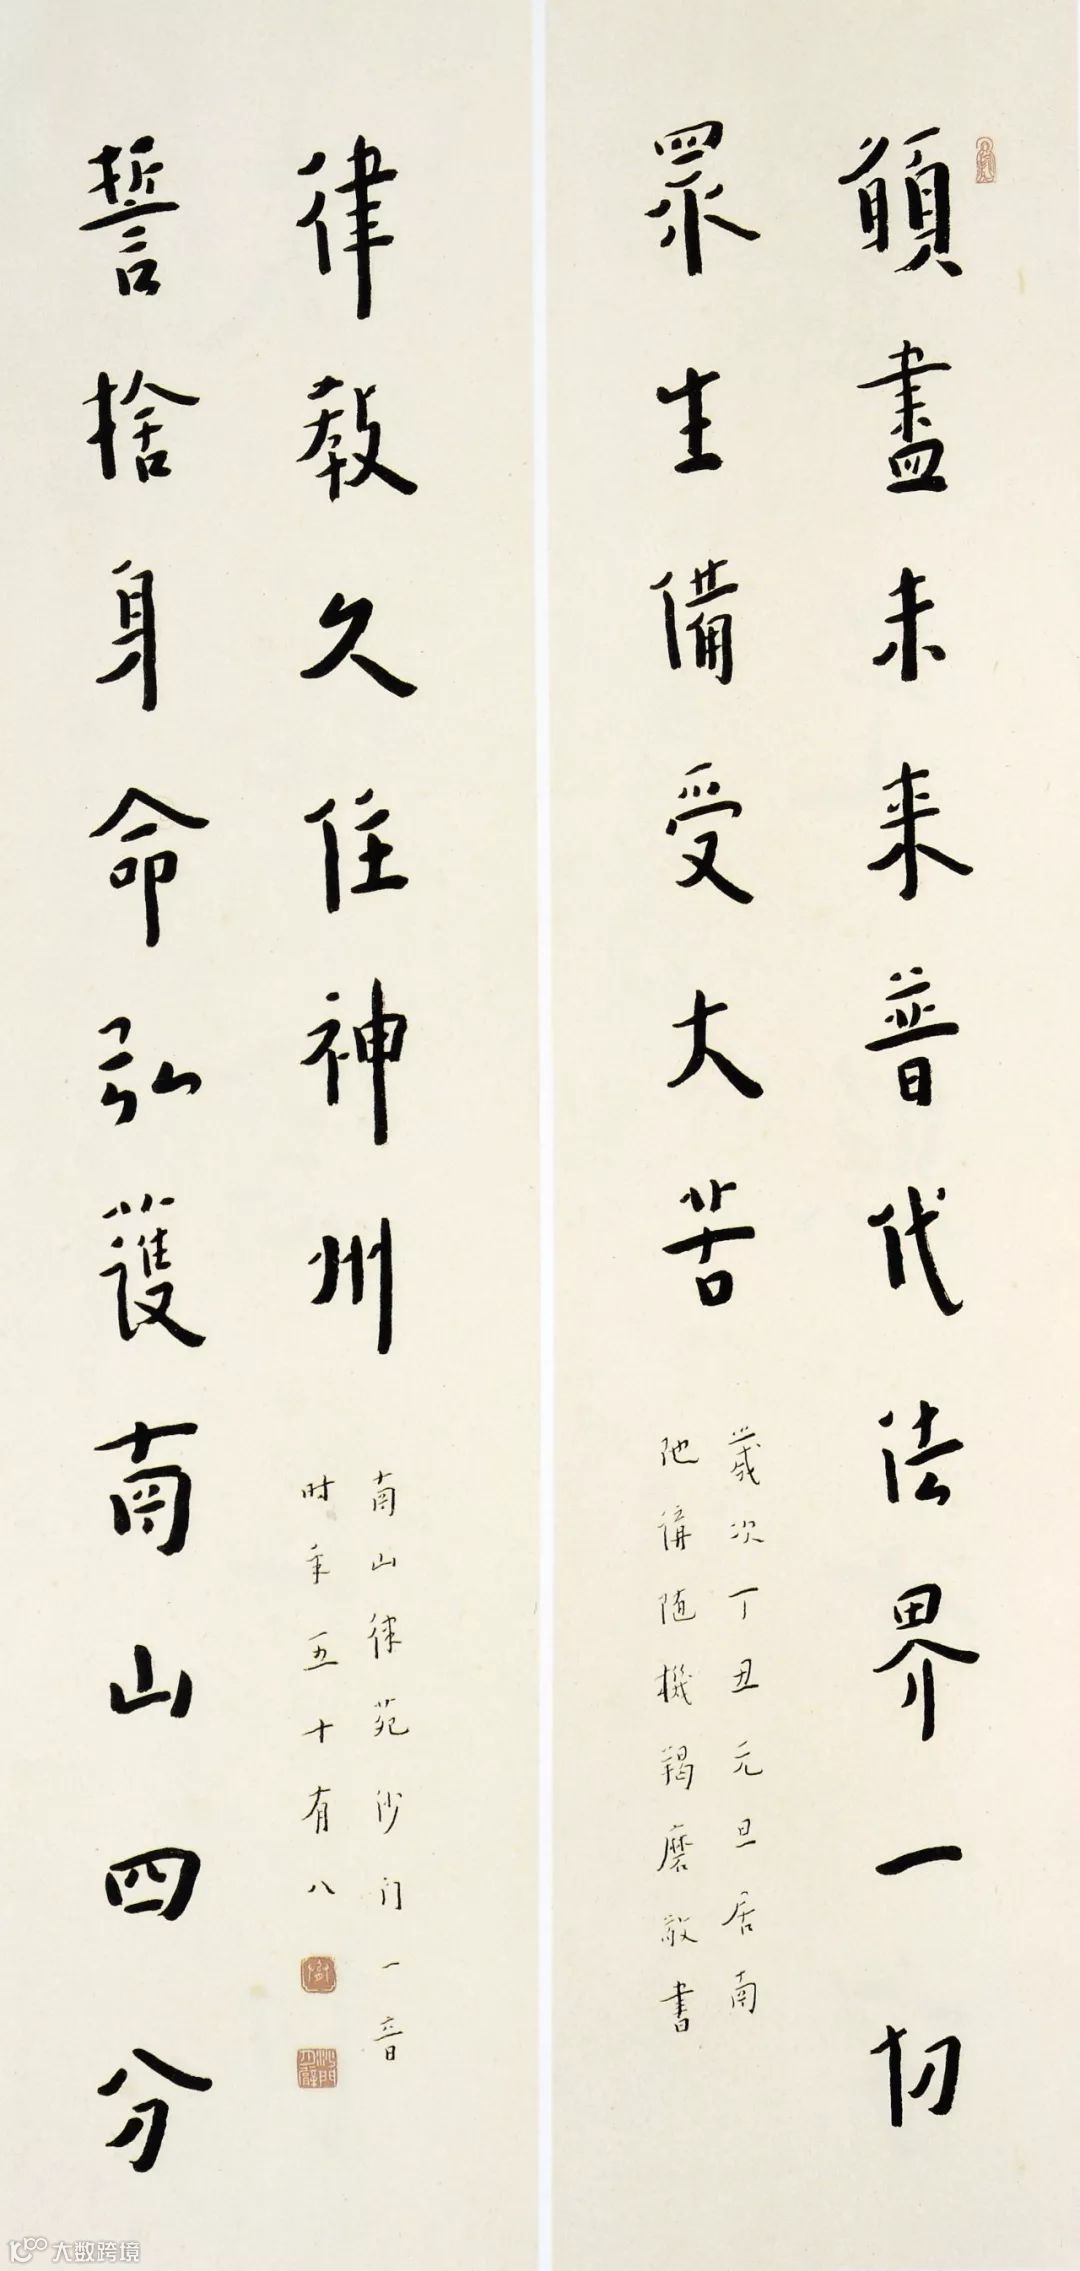 願盡未来普代法界一切
眾生備受大苦
歲次丁丑元旦居南
陁講随機羯磨敬書
誓捨身命弘護南山四分
律教久住神州
南山律苑沙门一音
时年五十有八
沙門月臂
大数跨境